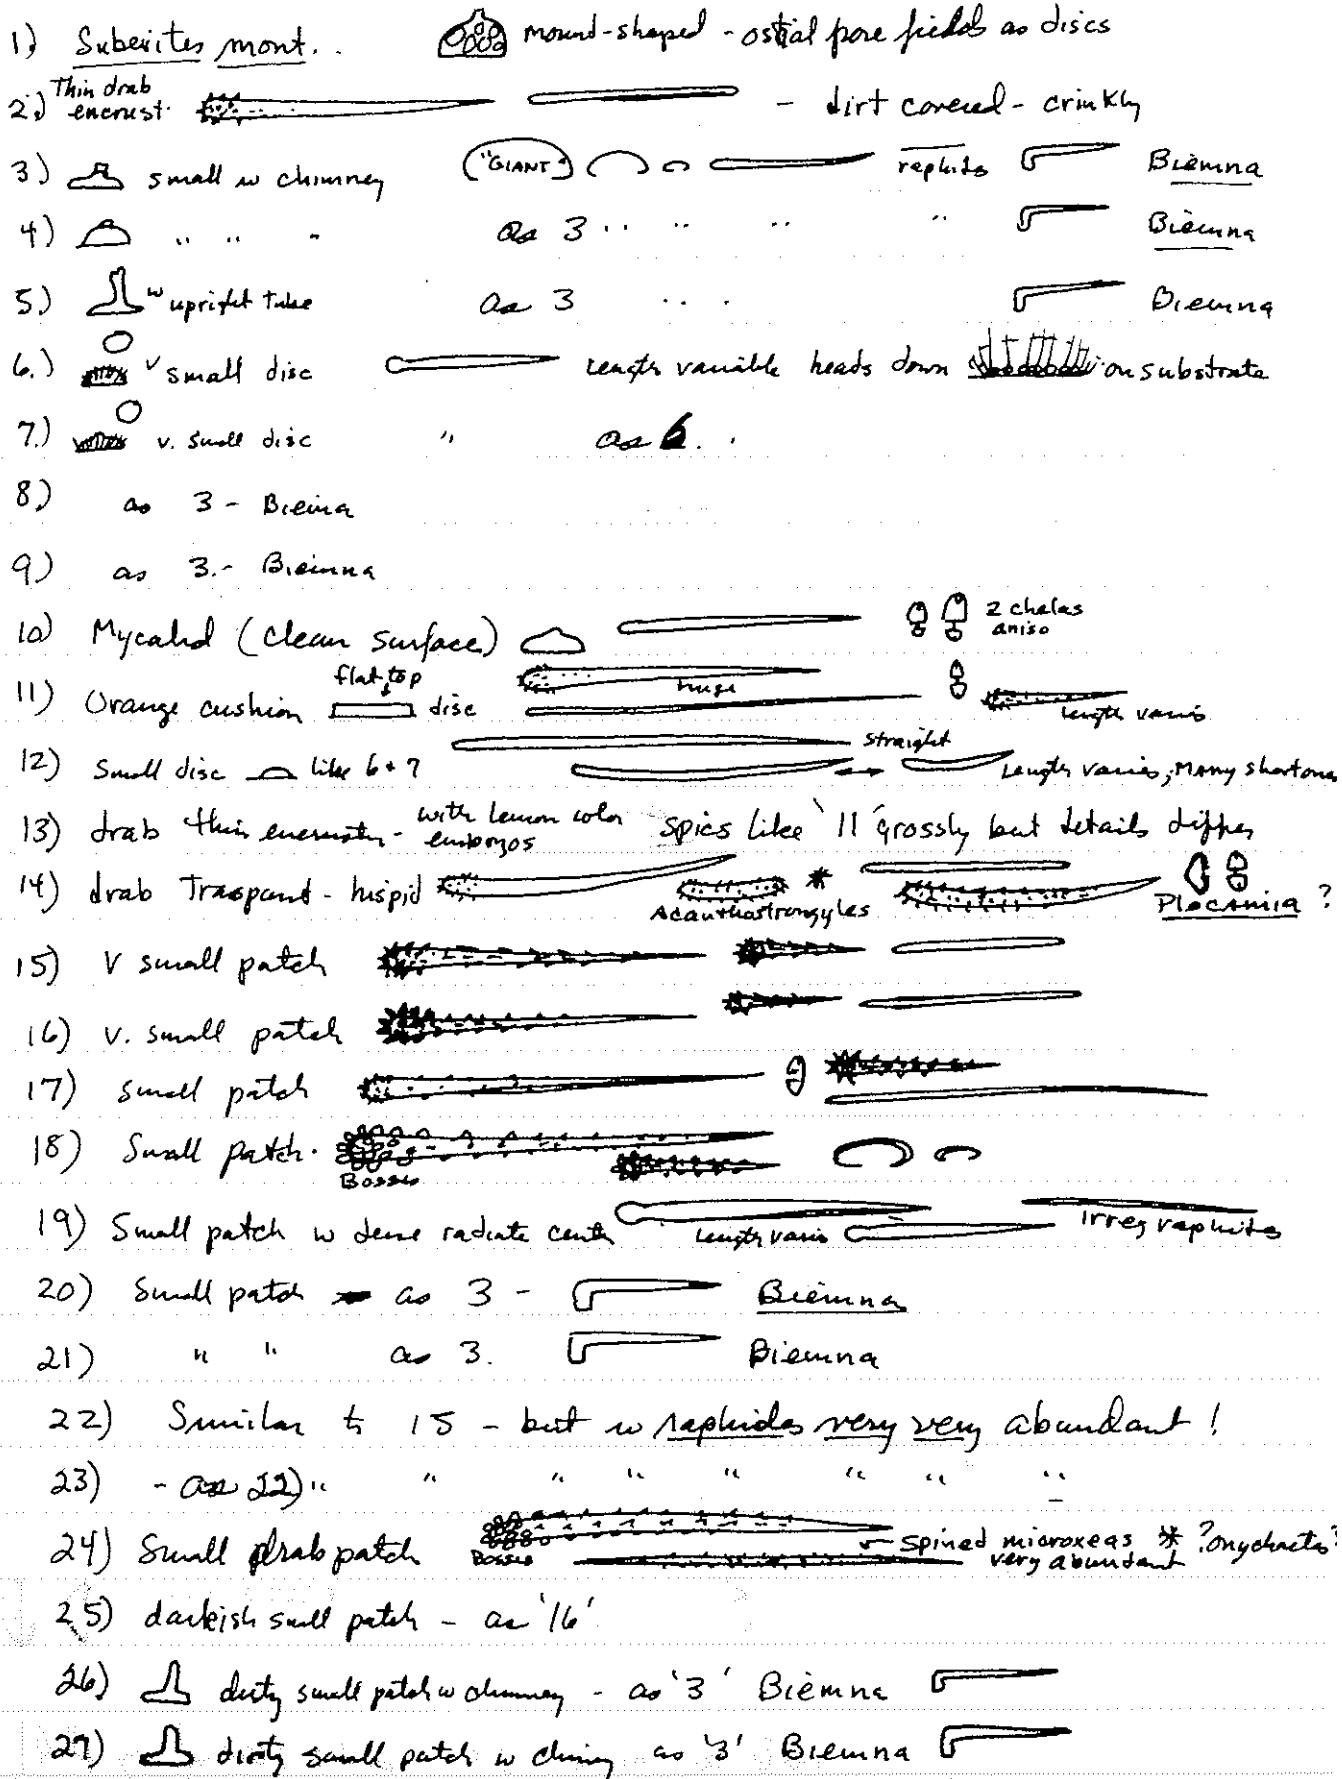 1) Suberites mont.. mound-shaped - ostial pore fields as discs
2.) Thin drab encrust. - dirt covered - crinkly
3) small w chimney ("GIANT") raphids Biemna
4) " " " as 3 " " " " Biemna
5) w upright tube as 3 " " Biemna
6.) v small disc length variable heads down on substrate
7.) v. small disc " as 6. .
8.) as 3 - Biemna
9) as 3. - Biemna
10) Mycalid (clean surface) 2 chelas aniso
11) Orange cushion flat top disc huge length varis
12) Small disc like 6 + 7 straight Length varies, Many short ones
13) drab thin encrustn - with lemon color embryos spics like '11' grossly but details differ
14) drab Traspant - hispid Acanthostrongyles Placamia?
15) V small patch
16) v. small patch
17) small patch
18) Small patch. Bosses
19) Small patch w dense radiate cente length varis irreg raphites
20) Small patch as 3 - Biemna
21) " " as 3. Biemna
22) Similar to 15 - but w raphides very very abundant!
23) - as 22) " " " " " " " "
24) Small drab patch Bosses spined microxeas ?onychaetes? very abundant
25) darkish small patch - as '16'
26) dirty small patch w chimney - as '3' Biemna
27) dirty small patch w chimny as '3' Biemna